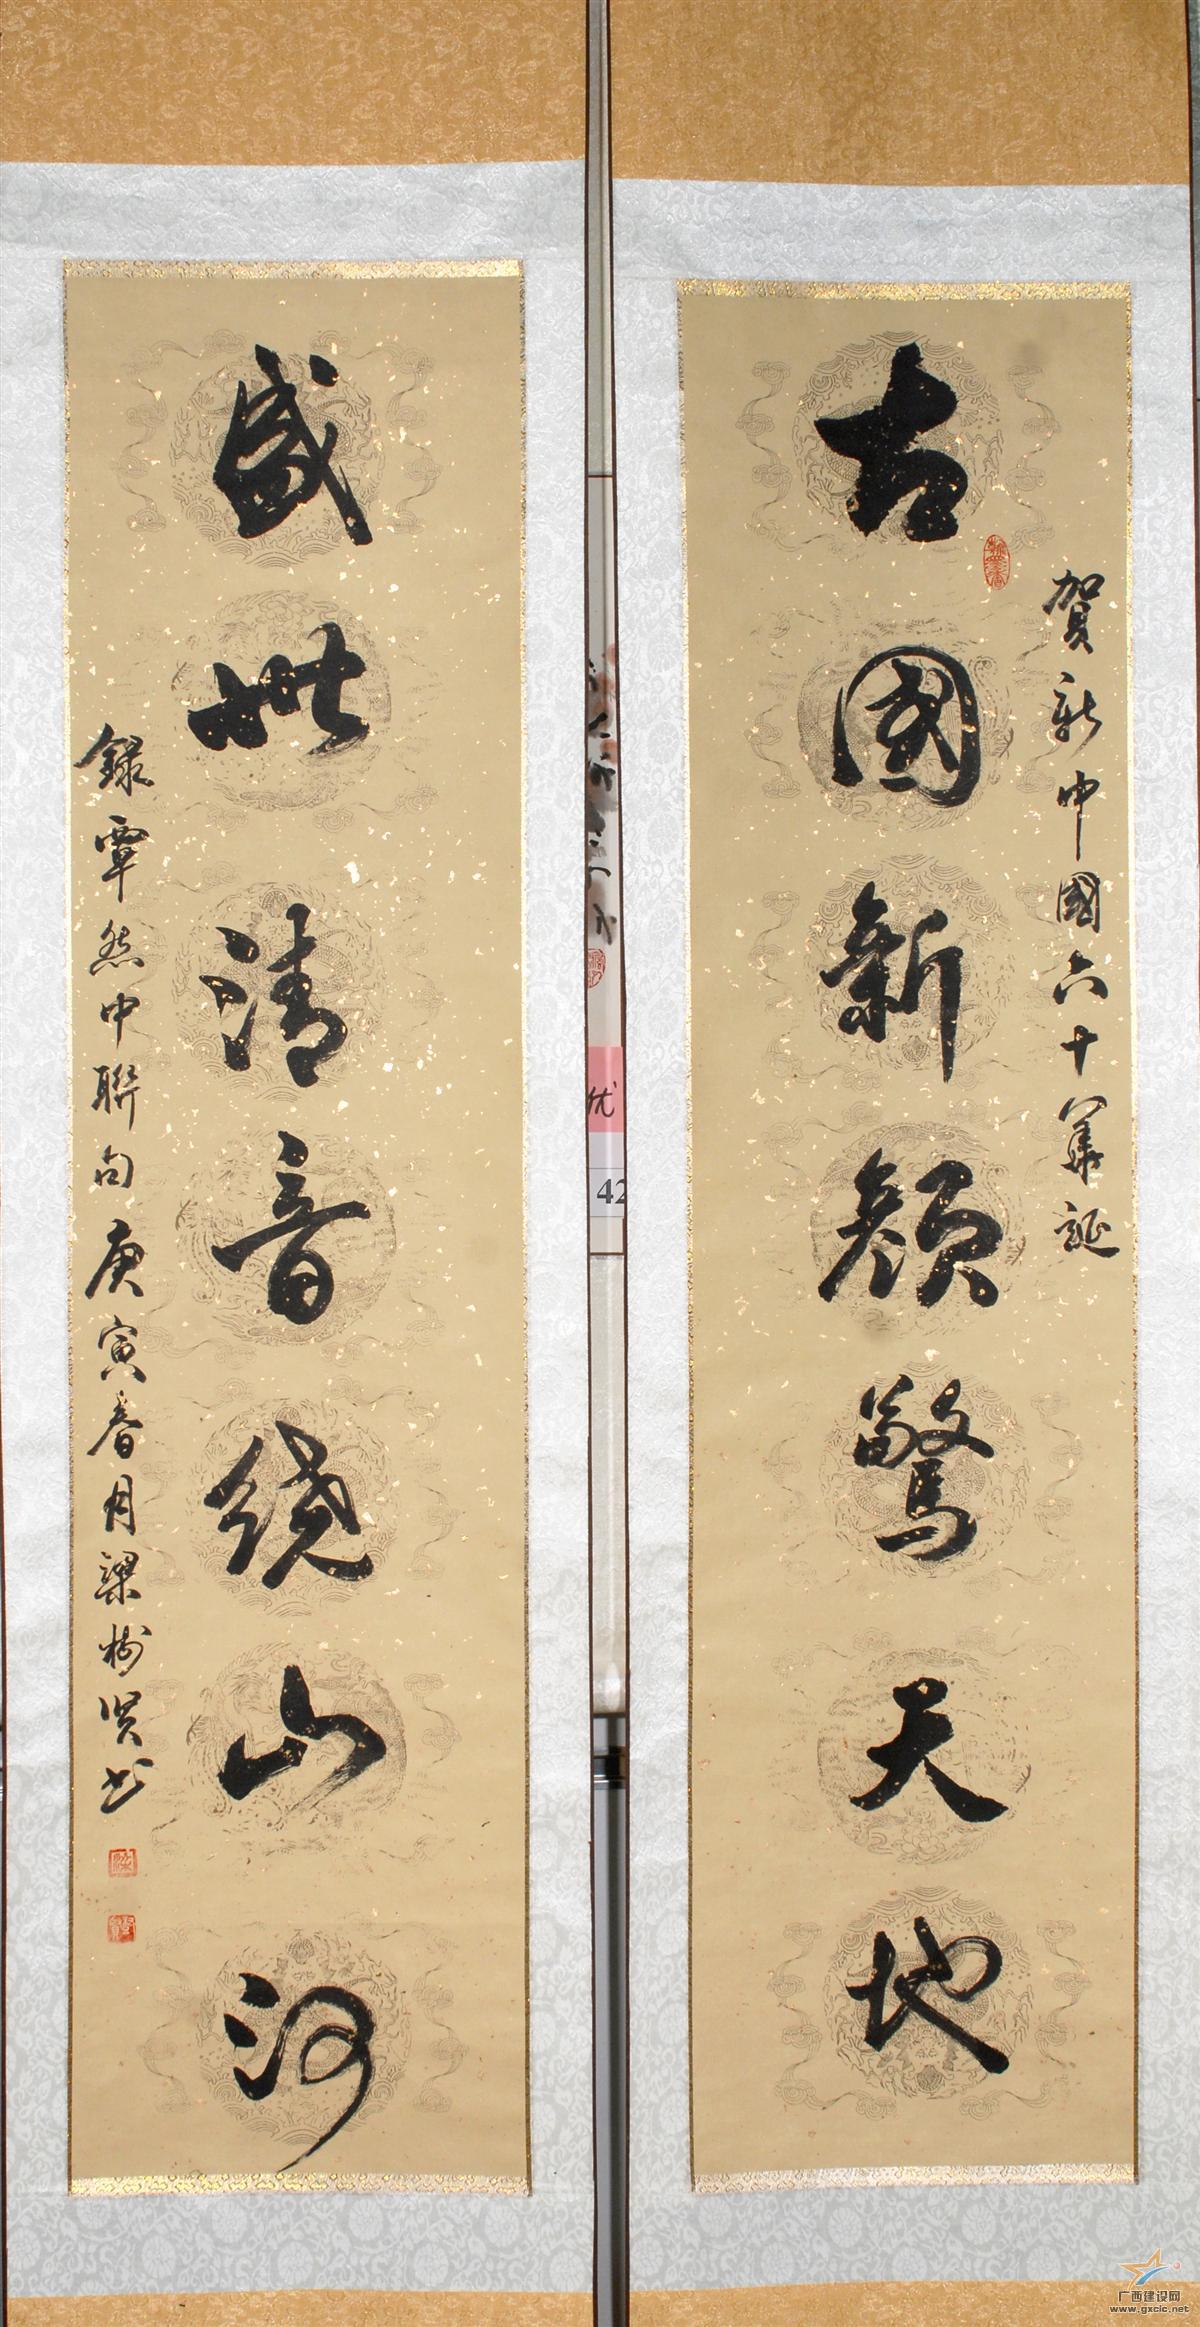 賀新中國六十華誕
古國新顔驚天地
盛世清音绕山河
錄覃然中聯句庚寅春月梁树贤书
优
42
广西建设网
www.gxcic.net